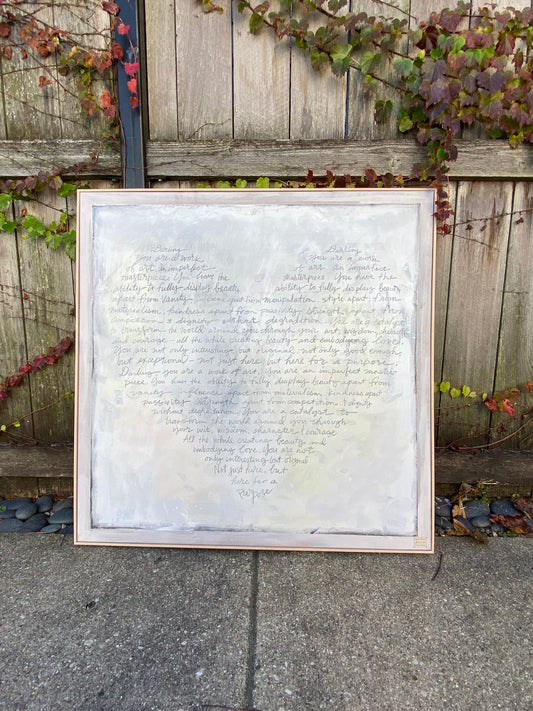 Darling Darling
you are a work You are a work
of art, an imperfect of art an imperfect
masterpiece. You have the masterpiece. You have the
ability to fully display beauty ability to fully display beauty
apart from vanity - apart from manipulation, style apart from
materialism, kindness apart from passivity strength apart from
competition & dignity without degradation. You are a catalyst
to transform the world around you through your wit, wisdom, character
and courage - all the while creating beauty and embodying love.
You are not only interesting but original not only good enough,
but exceptional - not just here but here for a purpose
Darling you are a work of art, You are an imperfect master
piece. You have the ability to fully display beauty apart from
vanity - apart from materialism, kindness apart
passivity strength apart from competition. & dignity
without degradation. You are a catalyst to
transform the world around you through
your wit, wisdom, character & courage
All the while creating beauty and
embodying love. You are not
only interesting but original
Not just here, but
here for a
purpose